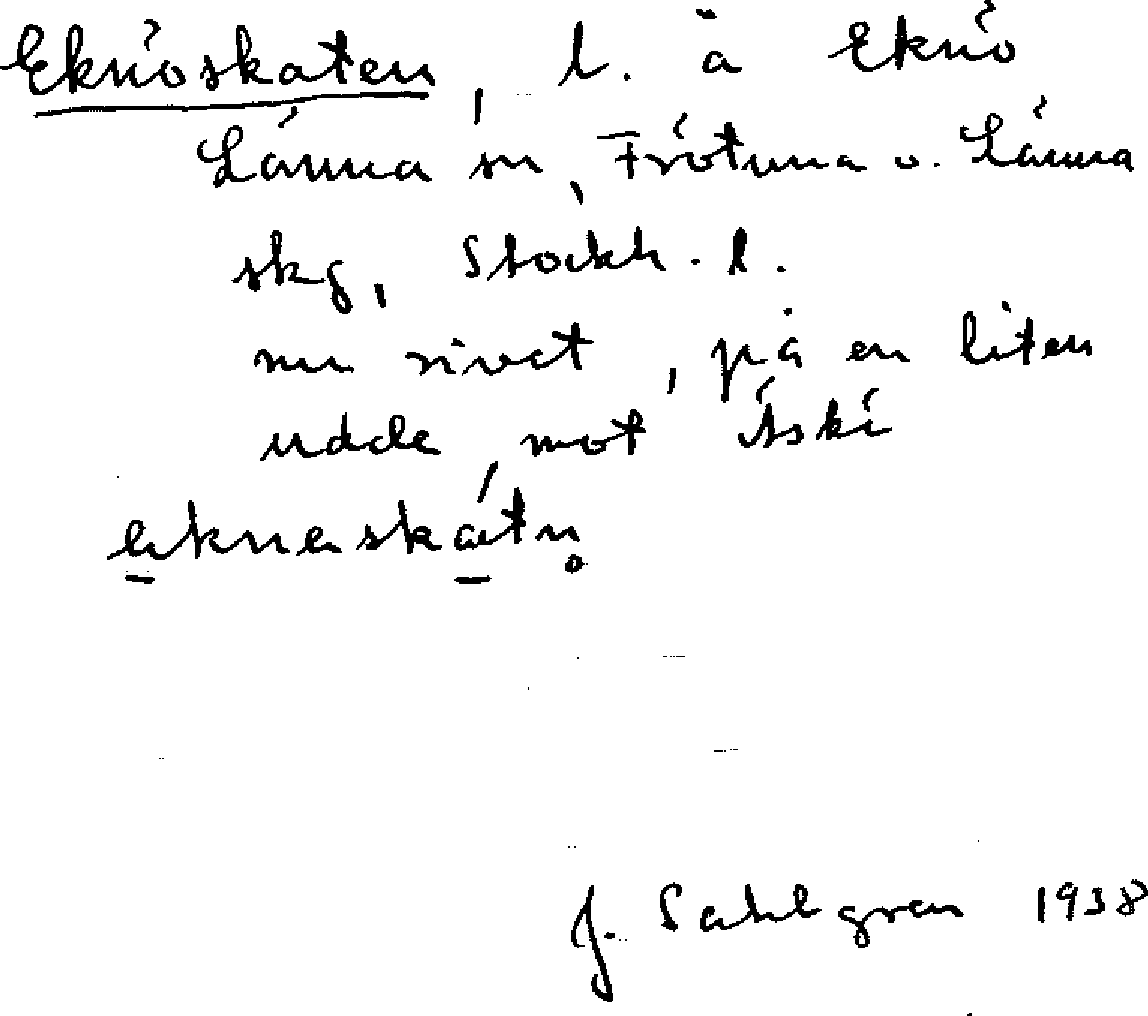 Eknöskaten, l. å Eknö
Länna sn, Frötuna o. Länna
skg, Stockh. l.
nu rivet, på en liten
udde, mot
ekneskátn
J. Sahlgren 1938